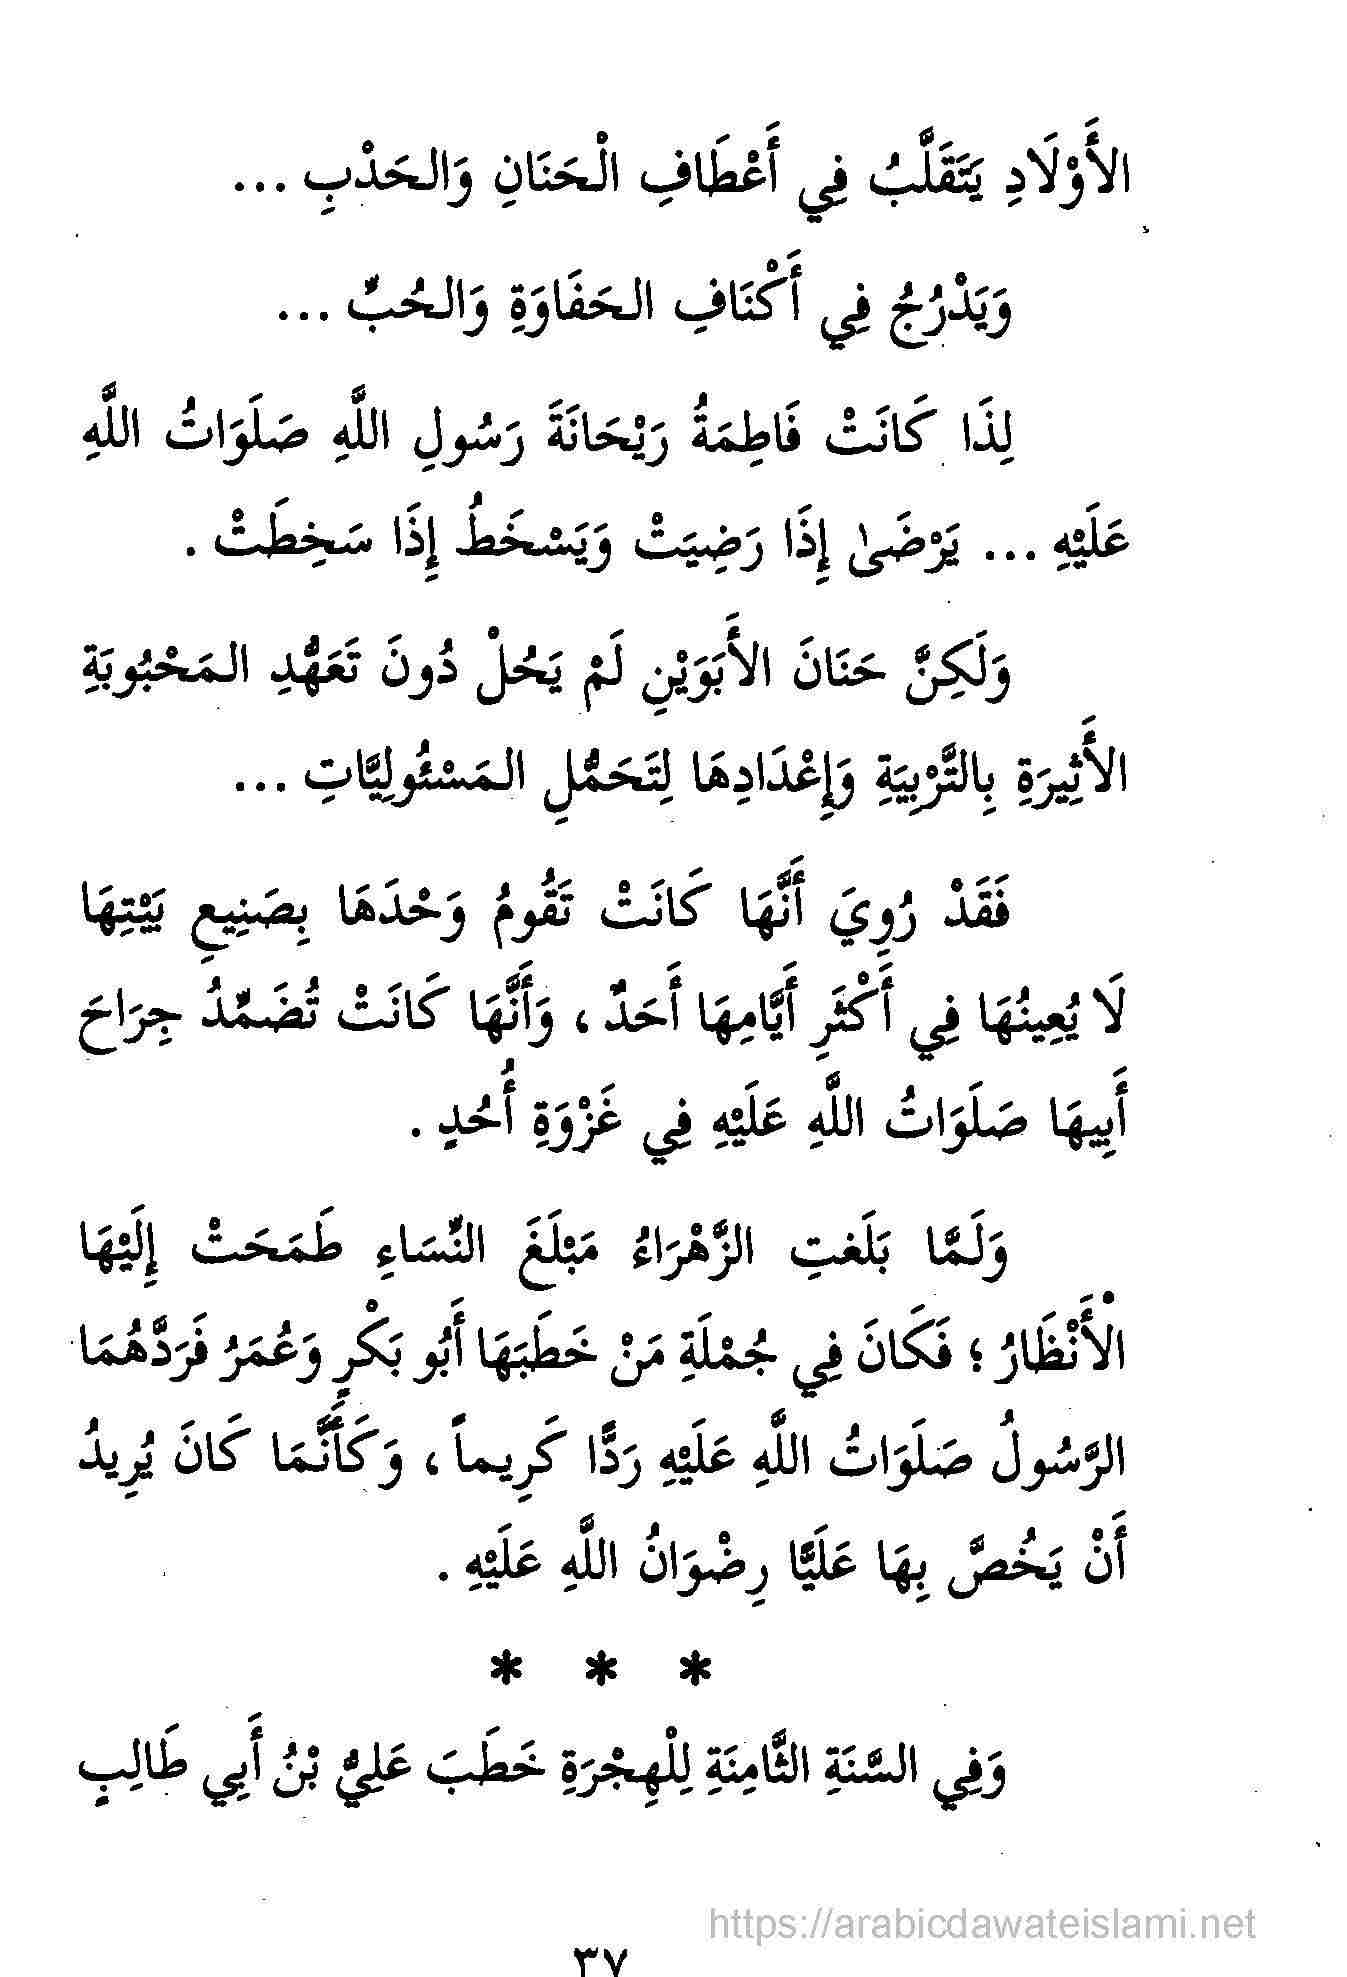 الأَوْلَادِ يَتَقَلَّبُ فِي أَعْطَافِ الْحَنَانِ وَالحَدْبِ ...
وَيَدْرُجُ فِي أَكْنَافِ الحَفَاوَةِ وَالحُبِّ ...
لِذَا كَانَتْ فَاطِمَةُ رَيْحَانَةَ رَسُولِ اللَّهِ صَلَوَاتُ اللَّهِ
عَلَيْهِ ... يَرْضَىٰ إِذَا رَضِيَتْ وَيَسْخَطُ إِذَا سَخِطَتْ .
وَلَكِنَّ حَنَانَ الأَبَوَيْنِ لَمْ يَحُلْ دُونَ تَعَهُّدِ المَحْبُوبَةِ
الأَثِيرَةِ بِالتَّرْبِيَةِ وَإِعْدَادِهَا لِتَحَمُّلِ المَسْئُولِيَّاتِ ...
فَقَدْ رُوِيَ أَنَّهَا كَانَتْ تَقُومُ وَحْدَهَا بِصَنِيعِ بَيْتِهَا
لَا يُعِينُهَا فِي أَكْثَرِ أَيَّامِهَا أَحَدٌ ، وَأَنَّهَا كَانَتْ تُضَمِّدُ جِرَاحَ
أَبِيهَا صَلَوَاتُ اللَّهِ عَلَيْهِ فِي غَزْوَةِ أُحُدٍ .
وَلَمَّا بَلَغتِ الزَّهْرَاءُ مَبْلَغَ النِّسَاءِ طَمَحَتْ إِلَيْهَا
الْأَنْظَارُ ؛ فَكَانَ فِي جُمْلَةِ مَنْ خَطَبَهَا أَبُو بَكْرٍ وَعُمَرُ فَرَدَّهُمَا
الرَّسُولُ صَلَوَاتُ اللَّهِ عَلَيْهِ رَدًّا كَرِيماً ، وَكَأَنَّمَا كَانَ يُرِيدُ
أَنْ يَخُصَّ بِهَا عَلَيًّا رِضْوَانُ اللَّهِ عَلَيْهِ .
* * *
وَفِي السَّنَةِ الثَّامِنَةِ لِلْهِجْرَةِ خَطَبَ عَلِيُّ بْنُ أَبِي طَالِبٍ
https://arabicdawateislami.net
٣٧